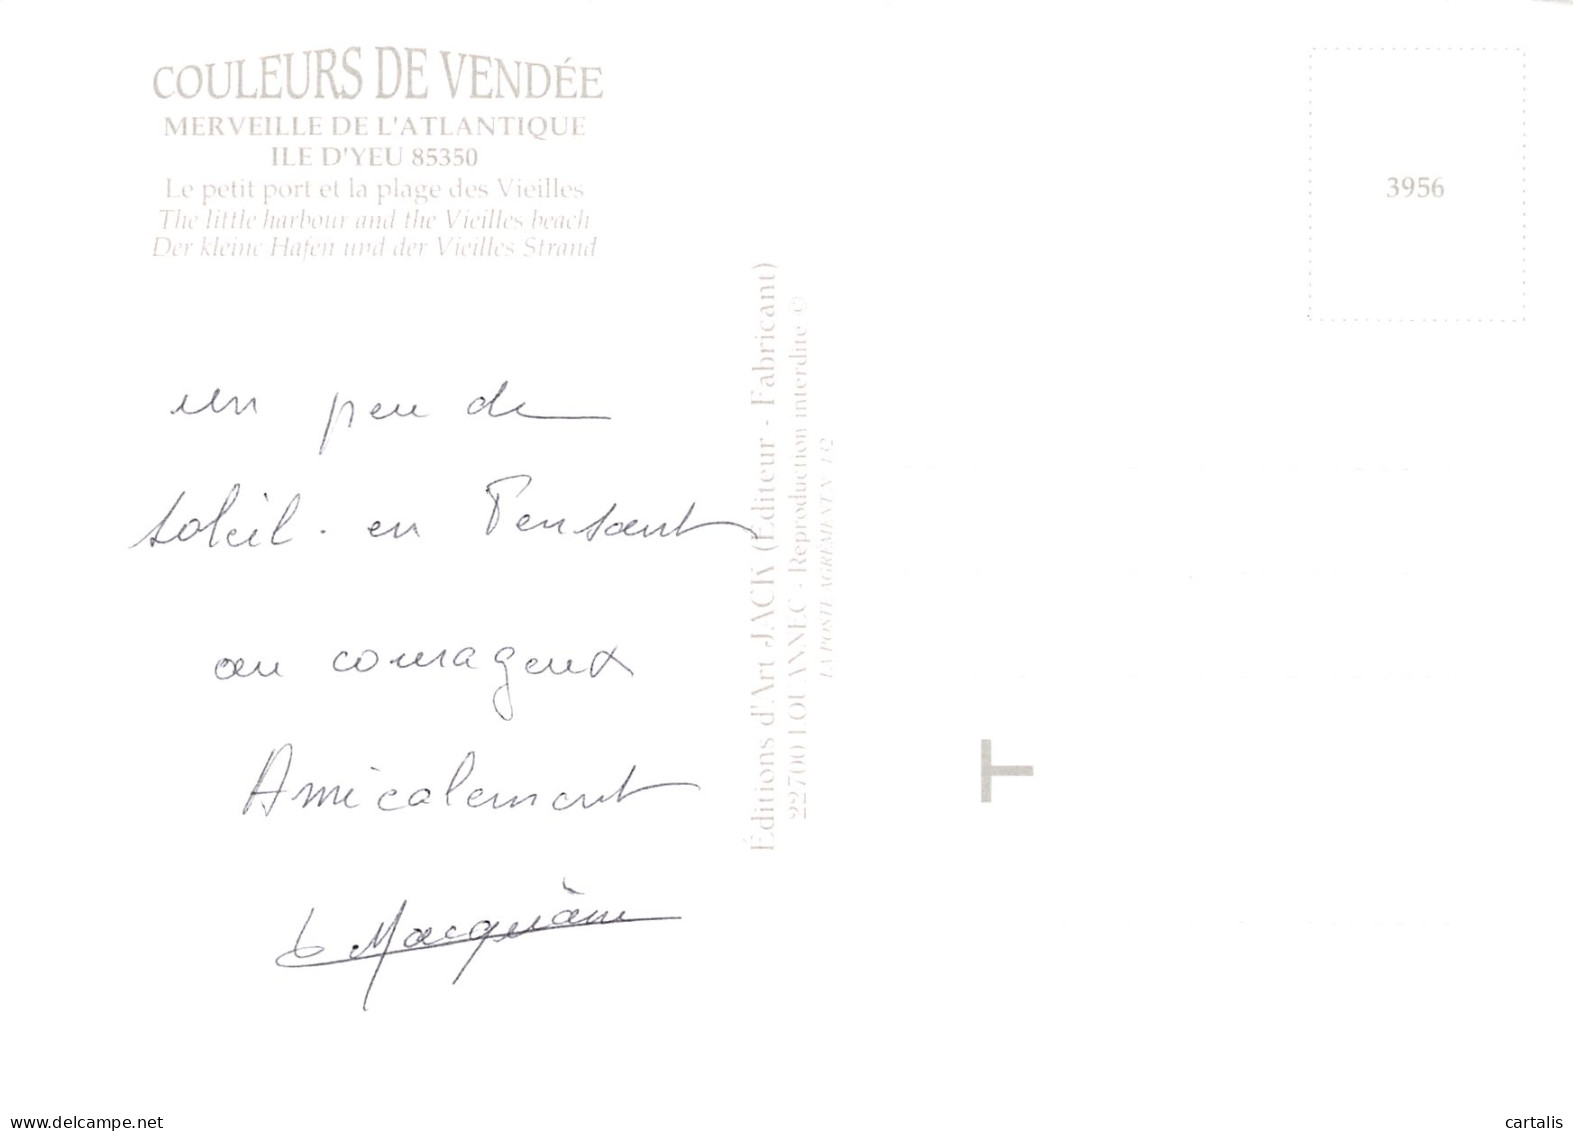 COULEURS DE VENDÉE
MERVEILLE DE L'ATLANTIQUE
ILE D'YEU 85350
Le petit port et la plage des Vieilles
The little harbour and the Vieilles beach
Der kleine Hafen und der Vieilles Strand
3956
un peu de
soleil. en Pensant
au courageux
Amicalement
Éditions d'Art JACK (Éditeur - Fabricant)
22700 LOUANNEC - Reproduction interdite ©
LA POSTE AGREMENT N° 132
T
www.delcampe.net
cartalis